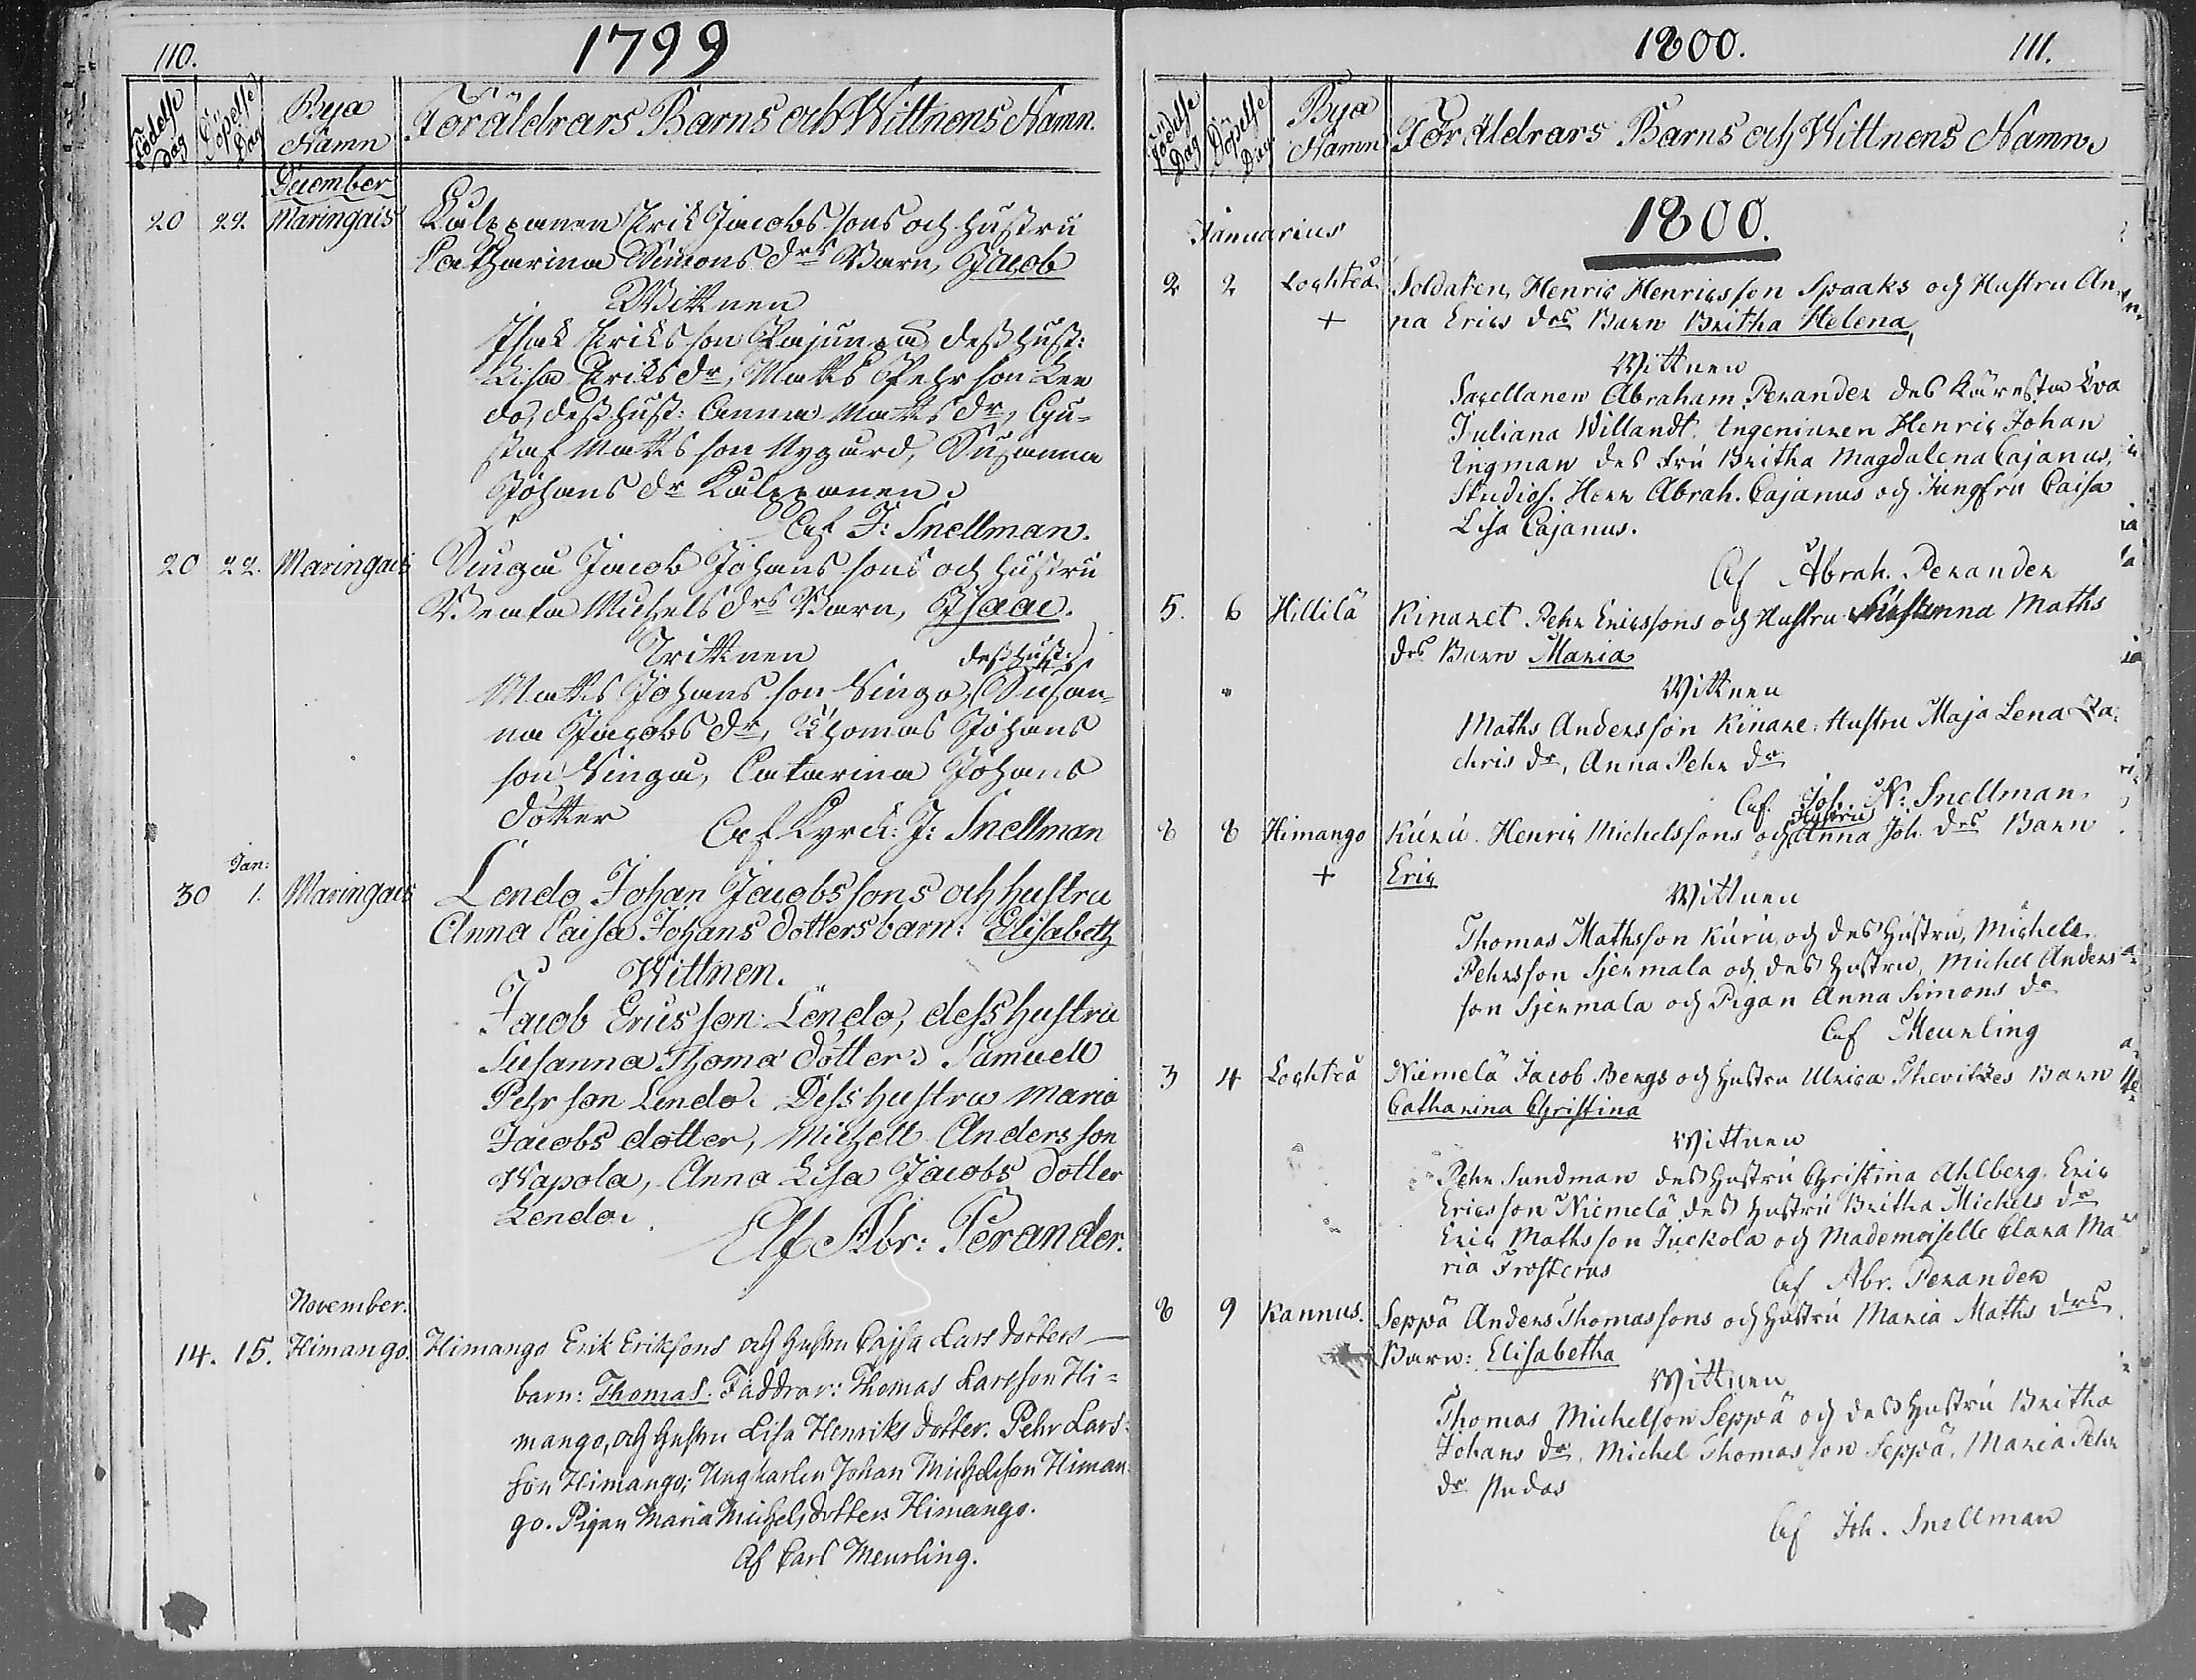 110.
1799
Födelse Dag
Döpelse Dag
Bya Namn
Föräldrars Barns och Wittnens Namn.
December
20 22. Maringais Kulppanen Erik Jacobs sons och hustru
Catharina Simons drs Barn, Jacob
Wittnen
Isak Eriks son Pajunpä dess hust:
Lisa Eriks dr, Matts Pehr son Len
do, dess hust: Anna Matts dr, Gu-
staf Matts son Nygård, Susanna
Johans dr Kulppanen.
Af J: Snellman.
20 22. Maringais Singa Jacob Johans sons och hustru
Beata Michels drs Barn, Isaac.
Wittnen
dess hust:
Matts Johans son Singa, Susan-
na Jacobs dr, Thomas Johans
son Singa, Catarina Johans
dotter
Af Kyrck: J: Snellman
Jan:
30 1. Maringais Lendo Johan Jacobs sons och hustru
Anna Caisa Johans dotters barn: Elisabeth
Wittnen.
Jacob Ericsson Lendo, dess hustru
Susanna Thoma dotter. Samuell
Pehr son Lendo. Dess hustru Maria
Jacobs dotter, Michell Anders son
Wapola, Anna Lisa Jacobs dotter
Lendo.
Af Abr: Perander.
November.
14. 15. Himango. Himango Erik Eriksons och hustru Cajsa Lars dotters
barn: Thomas. Faddrar: Thomas Larsson Hi-
mango, och hustru Lisa Henriks dotter. Pehr Lars-
son Himango; Ungkarlen Johan Michelsson Himan-
go. Pigan Maria Michelsdotters Himango.
Af Carl Meurling.
1800. 111.
Födelse Dag
Döpelse Dag
Bya Namn
Föräldrars Barns och Wittnens Namn.
1800.
Januarius
2 2 Lochteå. Soldaten, Henric Henricsson Spaaks och Hustru An
+ na Erics drs Barn Britha Helena,
Wittnen
Sacellanen Abraham Perander des Käresta Eva
Juliana Willandt. Ingeniuren Henric Johan
Ingman des Fru Britha Magdalena Cajanus,
Studios. Herr Abrah. Cajanus och Jungfru Caisa
Lisa Cajanus.
Af Abrah. Perander
5. 6 Hillilä Kinaret Pehr Ericssons och Hustru Susanna Maths
drs Barn Maria
Wittnen
Maths Andersson Kinare: Hustru Maja Lena Za-
chris dr, Anna Pehr dr
Af Joh. N: Snellman
Hustru
8 8 Himango Kuru. Henric Michelssons och Anna Joh. drs Barn
+ Eric
Wittnen
Thomas Mathsson Kuru och des Hustru, Michell
Pehrsson Sjermala och des Hustru, Michel Anders
son Sjermala och Pigan Anna Simons dr
Af Meurling
3 4 Lochteå Niemelä Jacob Bergs och Hustru Ulrica Thevitzes Barn
Catharina Christina
Wittnen
Pehr Sundman des Hustru Christina Ahlberg. Eric
Ericsson Niemelä des Hustru Britha Michels dr
Eric Mathsson Juckola och Mademoiselle Clara Ma
ria Frosterus
Af Abr. Perander
8 9 Kannus. Seppä Anders Thomassons och Hustru Maria Maths drs
Barn: Elisabetha
Wittnen
Thomas Michelson Seppä och des Hustru Britha
Johans dr. Michel Thomasson Seppä, Maria Pehr
dr Pudas
Af Joh. Snellman